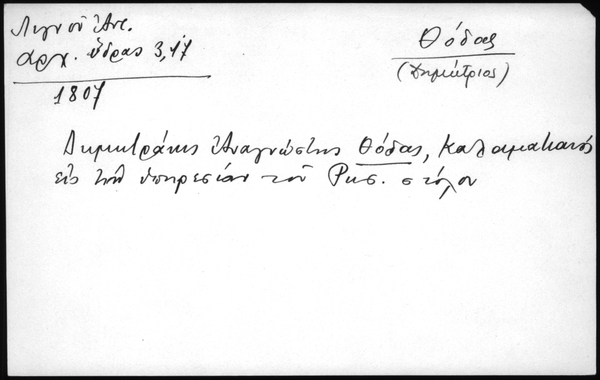 Λιγνού Ἀντ.
Ἀρχ. Ὕδρας 3, 17
1807
Θόδας
(Δημήτριος)
Δημητράκης Ἀναγνώστης Θόδας, Καλαματιανός
εἰς τὴν ὑπηρεσίαν τοῦ Ρωσ. στόλου